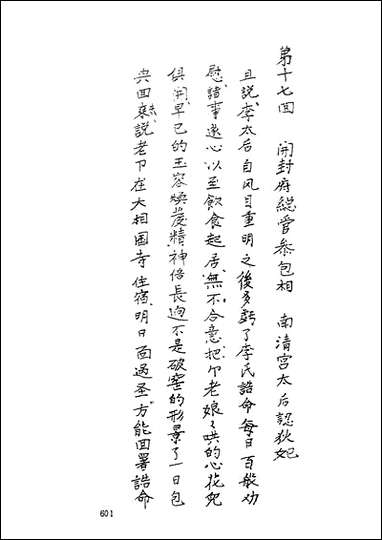 第十七回　開封府總管参包相　南清宮太后認狄妃
且説李太后自凤目重明之後多虧了李氏誥命每日百般劝
慰諸事遂心以至飲食起居無不合意把个老娘娘哄的心花兒
俱開早已的玉容煥發精神倍長逈不是破窰的形景了一日包
興回来説老爷在大相国寺住宿明日面過圣方能回署誥命
601